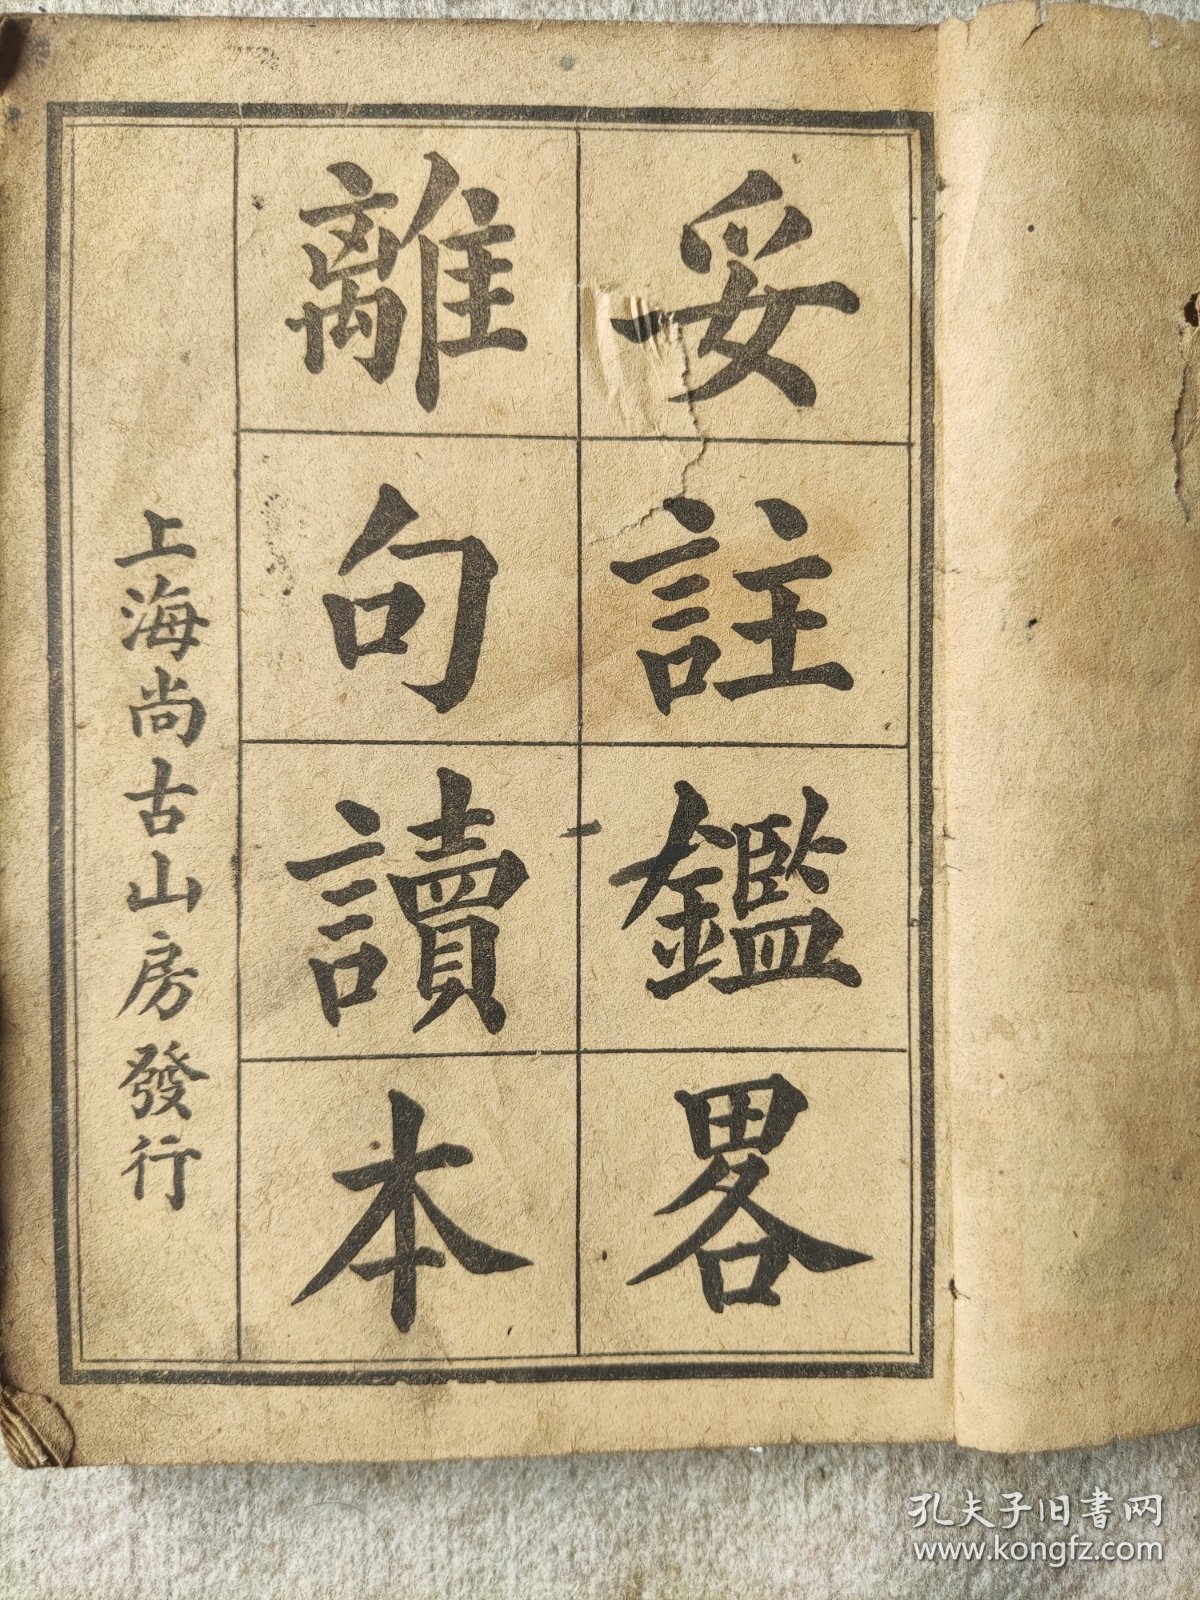 妥註鑑畧
離句讀本
上海尚古山房發行
孔夫子旧書网
www.kongfz.com